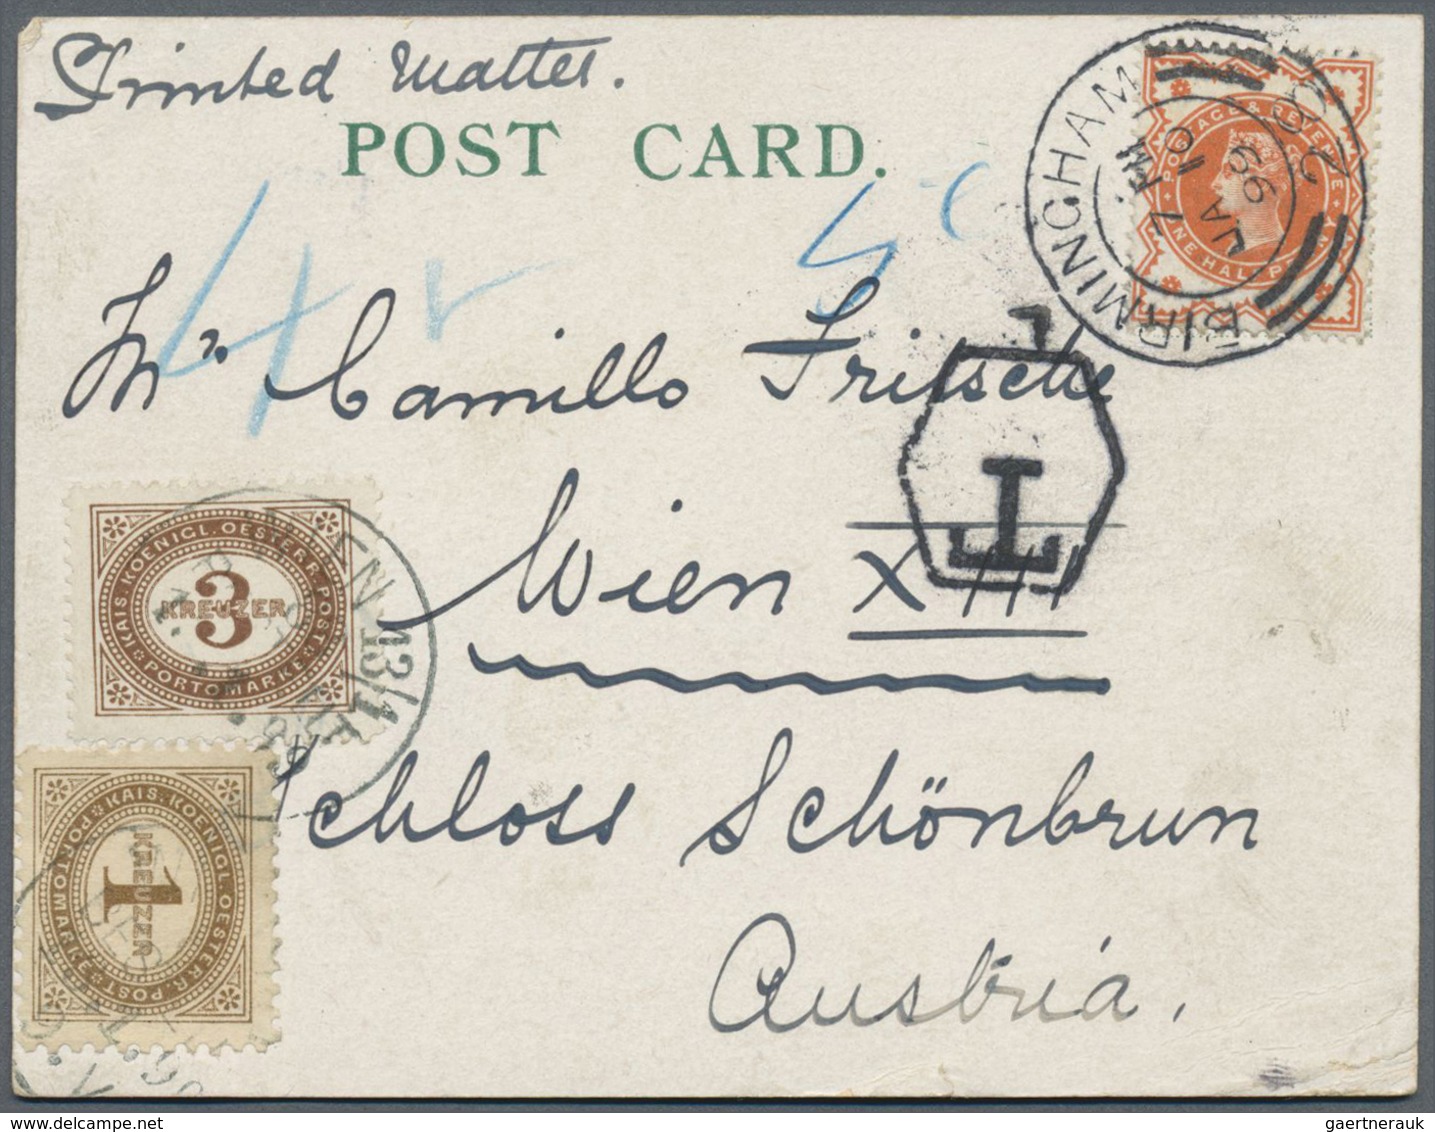 Printed Matter.
POST CARD.
BIRMINGHAM
7 PM
JA 10
99
POSTAGE & REVENUE
ONE HALFPENNY
4 r
5 c
Mr Camillo Fritsche
T
Wien XIII
Schloss Schönbrun
Austria.
KAIS. KOENIGL. OESTERR. POST
3
KREUZER
PORTOMARKE
WIEN 13/1
13/1
KAIS. KOENIGL. OESTERR. POST
1
KREUZER
PORTOMARKE
gaertnerauk